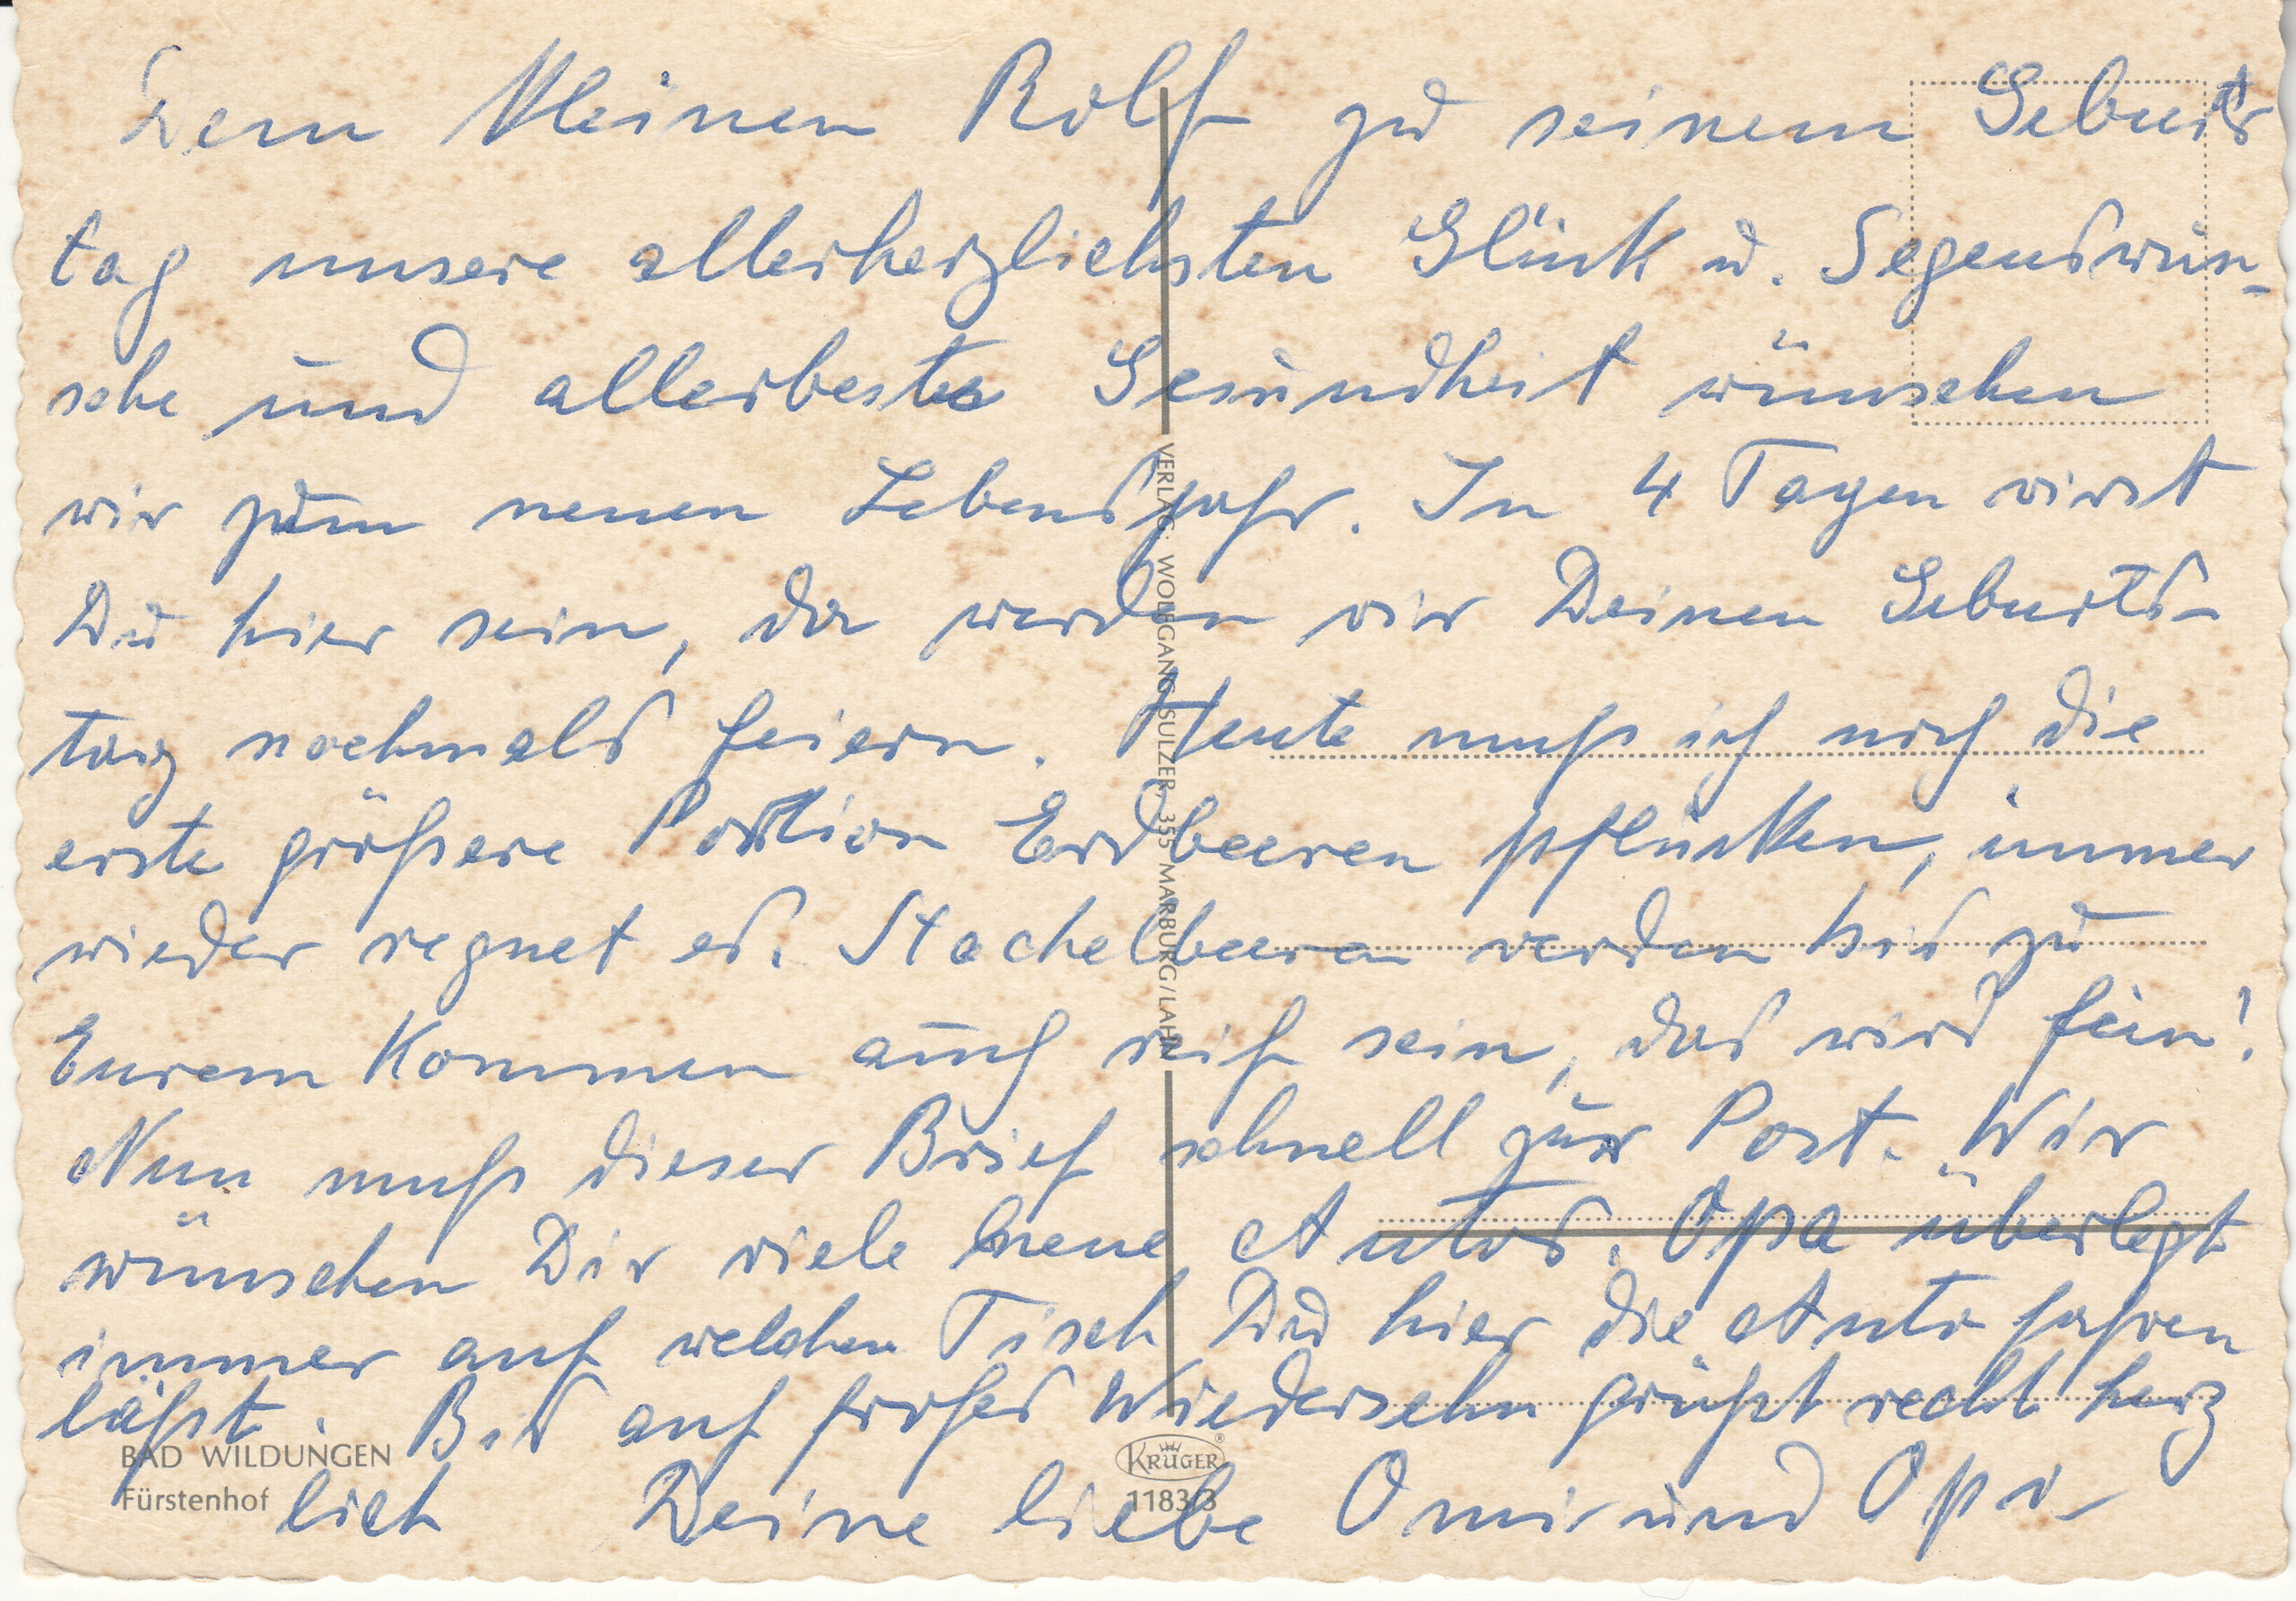 Dem kleinen Rolf zu seinem Geburts
tag unsere allerherzlichsten Glück u. Segenswün-
sche und allerbeste Gesundheit wünschen
wir zum neuen Lebensjahr. In 4 Tagen wirst
Du hier sein, da werden wir Deinen Geburts-
tag nochmals feiern. Heute muß ich noch die
erste größere Portion Erdbeeren pflücken, immer
wieder regnet es. Stachelbeeren werden bis zu
Eurem Kommen auch reif sein, das wird fein!
Nun muß dieser Brief schnell zur Post. Wir
wünschen Dir viele neue Autos. Opa überlegt
immer auf welchen Tisch Du hier die Auto fahren
läßt. Bis auf frohes Wiedersehn grüßt recht herz
lich Deine liebe Omi und Opa
VERLAG: WOLFGANG SULZER, 355 MARBURG/LAHN
BAD WILDUNGEN
Fürstenhof
KRÜGER®
1183/3